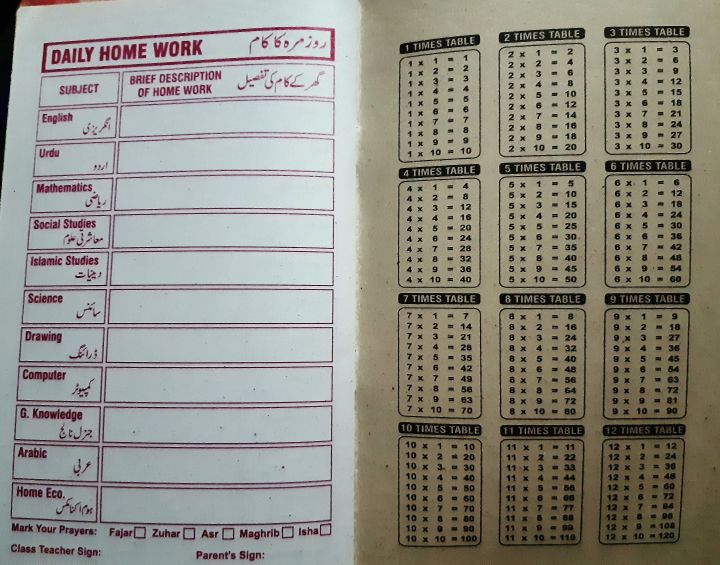 DAILY HOME WORK روزمرہ کا کام
SUBJECT
BRIEF DESCRIPTION
OF HOME WORK گھر کے کام کی تفصیل
English
انگریزی
Urdu
اردو
Mathematics
ریاضی
Social Studies
معاشرتی علوم
Islamic Studies
دینیات
Science
سائنس
Drawing
ڈرائنگ
Computer
کمپیوٹر
G. Knowledge
جنرل نالج
Arabic
عربی
Home Eco.
ہوم اکنامکس
Mark Your Prayers: Fajar Zuhar Asr Maghrib Isha
Class Teacher Sign: Parent's Sign:
1 TIMES TABLE
1 x 1 = 1
1 x 2 = 2
1 x 3 = 3
1 x 4 = 4
1 x 5 = 5
1 x 6 = 6
1 x 7 = 7
1 x 8 = 8
1 x 9 = 9
1 x 10 = 10
2 TIMES TABLE
2 x 1 = 2
2 x 2 = 4
2 x 3 = 6
2 x 4 = 8
2 x 5 = 10
2 x 6 = 12
2 x 7 = 14
2 x 8 = 16
2 x 9 = 18
2 x 10 = 20
3 TIMES TABLE
3 x 1 = 3
3 x 2 = 6
3 x 3 = 9
3 x 4 = 12
3 x 5 = 15
3 x 6 = 18
3 x 7 = 21
3 x 8 = 24
3 x 9 = 27
3 x 10 = 30
4 TIMES TABLE
4 x 1 = 4
4 x 2 = 8
4 x 3 = 12
4 x 4 = 16
4 x 5 = 20
4 x 6 = 24
4 x 7 = 28
4 x 8 = 32
4 x 9 = 36
4 x 10 = 40
5 TIMES TABLE
5 x 1 = 5
5 x 2 = 10
5 x 3 = 15
5 x 4 = 20
5 x 5 = 25
5 x 6 = 30
5 x 7 = 35
5 x 8 = 40
5 x 9 = 45
5 x 10 = 50
6 TIMES TABLE
6 x 1 = 6
6 x 2 = 12
6 x 3 = 18
6 x 4 = 24
6 x 5 = 30
6 x 6 = 36
6 x 7 = 42
6 x 8 = 48
6 x 9 = 54
6 x 10 = 60
7 TIMES TABLE
7 x 1 = 7
7 x 2 = 14
7 x 3 = 21
7 x 4 = 28
7 x 5 = 35
7 x 6 = 42
7 x 7 = 49
7 x 8 = 56
7 x 9 = 63
7 x 10 = 70
8 TIMES TABLE
8 x 1 = 8
8 x 2 = 16
8 x 3 = 24
8 x 4 = 32
8 x 5 = 40
8 x 6 = 48
8 x 7 = 56
8 x 8 = 64
8 x 9 = 72
8 x 10 = 80
9 TIMES TABLE
9 x 1 = 9
9 x 2 = 18
9 x 3 = 27
9 x 4 = 36
9 x 5 = 45
9 x 6 = 54
9 x 7 = 63
9 x 8 = 72
9 x 9 = 81
9 x 10 = 90
10 TIMES TABLE
10 x 1 = 10
10 x 2 = 20
10 x 3 = 30
10 x 4 = 40
10 x 5 = 50
10 x 6 = 60
10 x 7 = 70
10 x 8 = 80
10 x 9 = 90
10 x 10 = 100
11 TIMES TABLE
11 x 1 = 11
11 x 2 = 22
11 x 3 = 33
11 x 4 = 44
11 x 5 = 55
11 x 6 = 66
11 x 7 = 77
11 x 8 = 88
11 x 9 = 99
11 x 10 = 110
12 TIMES TABLE
12 x 1 = 12
12 x 2 = 24
12 x 3 = 36
12 x 4 = 48
12 x 5 = 60
12 x 6 = 72
12 x 7 = 84
12 x 8 = 96
12 x 9 = 108
12 x 10 = 120